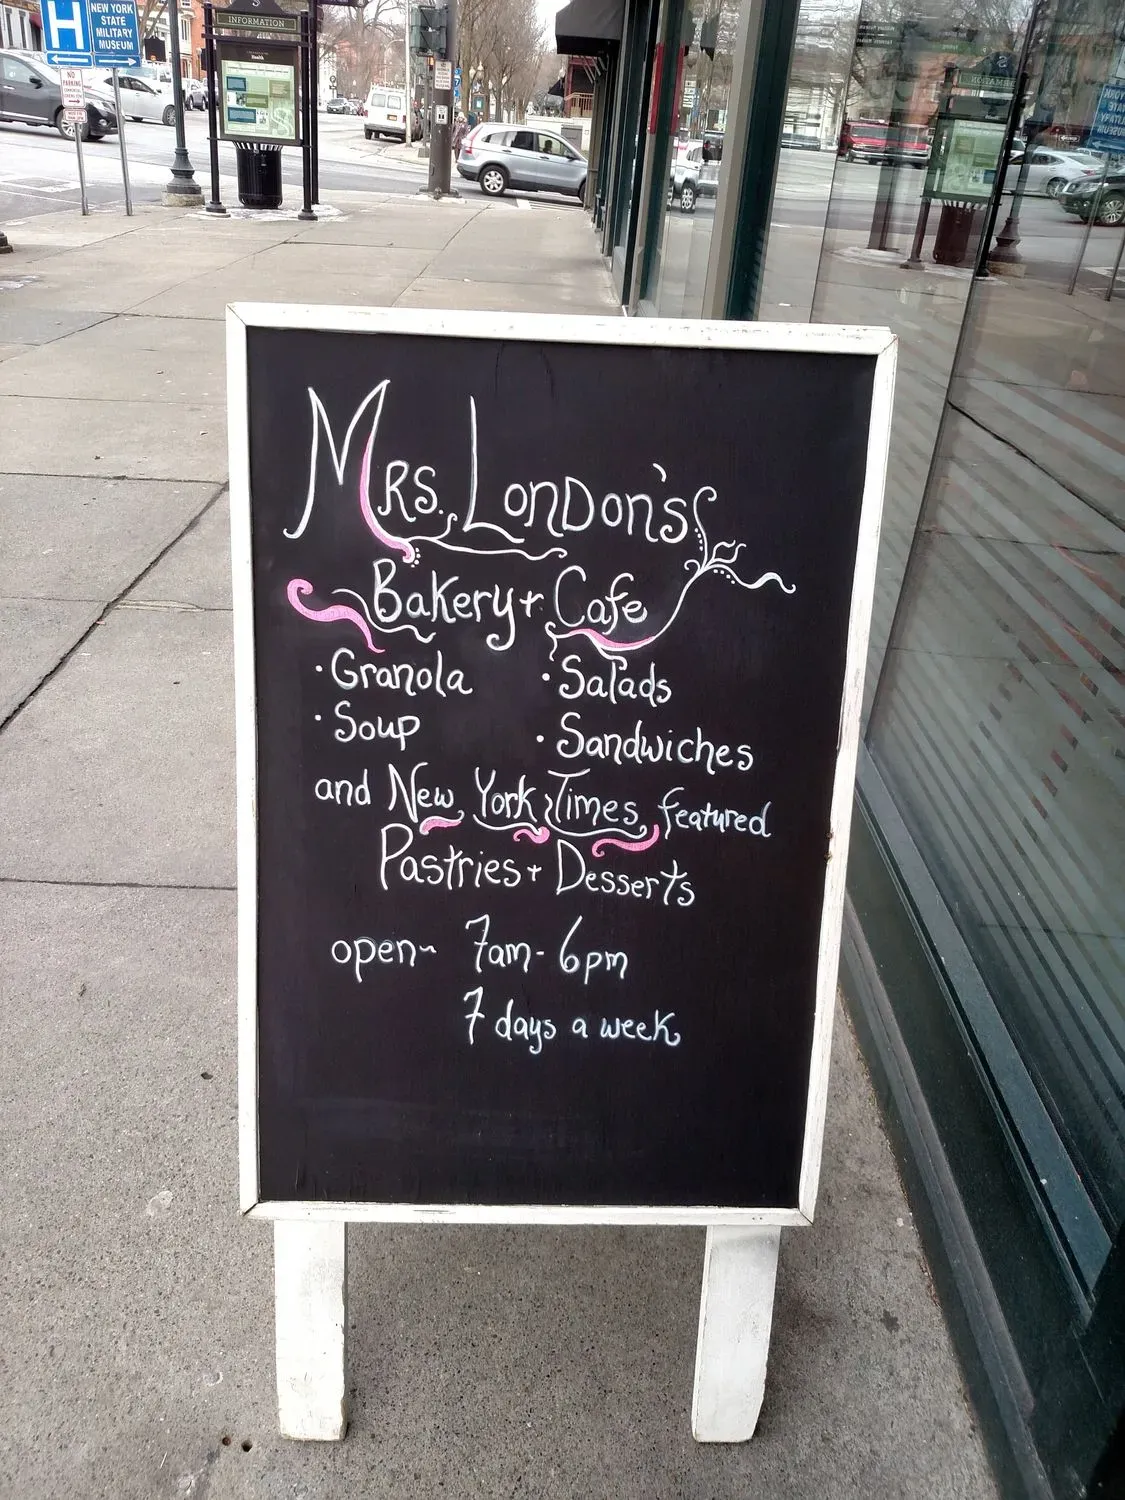 H
NEW YORK
STATE
MILITARY
MUSEUM
NO
PARKING
INFORMATION
Health
Mrs. London's
Bakery + Cafe
· Granola · Salads
· Soup · Sandwiches
and New York Times featured
Pastries + Desserts
open~ 7am - 6pm
7 days a week